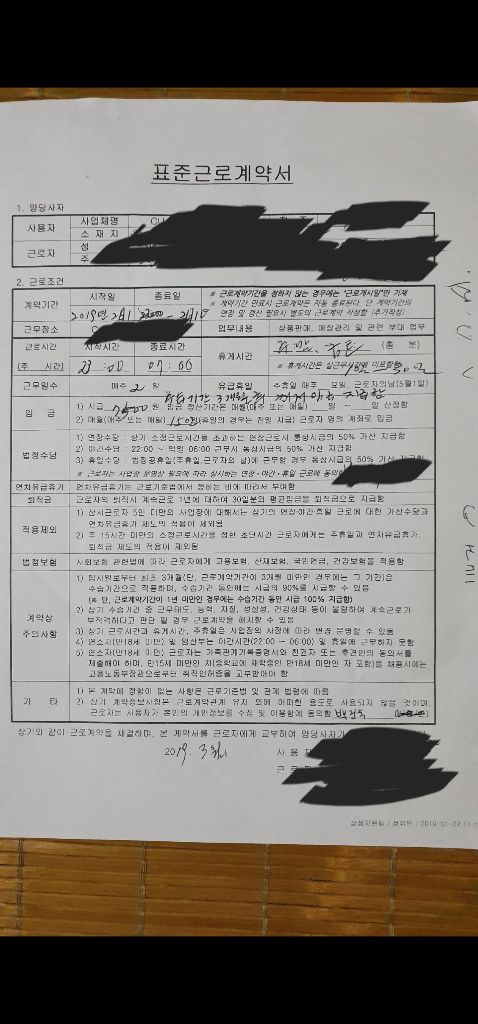 표준근로계약서
1. 양당사자
사용자 사업체명 CU
소재지
근로자 성
주
2. 근로조건
계약기간 시작일 종료일 ※ 근로계약기간을 정하지 않는 경우에는 "근로개시일"만 기재
※ 계약기간 만료시 근로계약은 자동 종료된다. 단 계약기간의
연장 및 갱신 필요시 별도의 계약 작성함 (추가작성)
근무장소 C 업무내용 상품판매, 매장관리 및 관련 부대 업무
근로시간 시작시간 종료시간 휴게시간 (총 분)
(주 시간) 23:00 07:00 ※ 휴게시간은 실근무시간에 미포함됨
근무일수 매주 2 일 유급휴일 주휴일 매주 요일, 근로자의날(5월1일)
임 금 1) 시급 원, 임금 정산기간은 매월(매주 또는 매일) 일 ~ 일 산정함
2) 매월(매주 또는 매일) 15일(휴일의 경우는 전일 지급) 근로자 명의 계좌로 입금
법정수당 1) 연장수당 : 상기 소정근로시간을 초과하는 연장근로시 통상시급의 50% 가산 지급함
2) 야간수당 : 22:00 ~ 익일 06:00 근무시 통상시급의 50% 가산 지급함
3) 휴일수당 : 법정공휴일(주휴일,근로자의 날)에 근무할 경우 통상시급의 50% 가산 지급함
※ 근로자는 사업장 운영상 필요에 따라 실시하는 연장·야간·휴일 근로에 동의
연차유급휴가 연차유급휴가는 근로기준법에서 정하는 바에 따라서 부여함
퇴직금 근로자의 퇴직시 계속근로 1년에 대하여 30일분의 평균임금을 퇴직금으로 지급함
적용제외 1) 상시근로자 5인 미만의 사업장에 대해서는 상기의 연장·야간·휴일 근로에 대한 가산수당과
연차유급휴가 제도의 적용이 제외됨
2) 주 15시간 미만의 소정근로시간을 정한 초단시간 근로자에게는 주휴일과 연차유급휴가,
퇴직금 제도의 적용이 제외됨
법정보험 사회보험 관련법에 따라 근로자에게 고용보험, 산재보험, 국민연금, 건강보험을 적용함
계약상
주의사항 1) 입사일로부터 최초 3개월(단, 근로계약기간이 3개월 미만인 경우에는 그 기간)은
수습기간으로 적용하며, 수습기간 동안에는 시급의 90%를 지급할 수 있음
(※ 단, 근로계약기간이 1년 미만인 경우에는 수습기간 동안 시급 100% 지급함)
2) 상기 수습기간 중 근무태도, 능력, 자질, 성실성, 건강상태 등이 불량하여 계속근로가
부적격하다고 판단 될 경우 근로계약을 해지할 수 있음
3) 상기 근로시간과 휴게시간, 주휴일은 사업장의 사정에 따라 변경 운영할 수 있음
4) 연소자(만18세 미만) 및 임산부는 야간시간(22:00 ~ 06:00) 및 휴일에 근무하지 못함
5) 연소자(만18세 미만) 근로자는 가족관계기록증명서와 친권자 또는 후견인의 동의서를
제출해야 하며, 만15세 미만인 자(중학교에 재학중인 만18세 미만인 자 포함)을 채용시에는
고용노동부장관으로부터 취직인허증을 교부받아야 함
기 타 1) 본 계약에 정함이 없는 사항은 근로기준법 및 관계 법령에 따름
2) 상기 계약정보사항은 근로계약관계 유지 외에 어떠한 용도로 사용되지 않을 것이며,
근로자는 사용자가 본인의 개인정보를 수집 및 이용함에 동의함
상기와 같이 근로계약을 체결하며, 본 계약서를 근로자에게 교부하여 양당사자가
2019. 3 사용자
근로